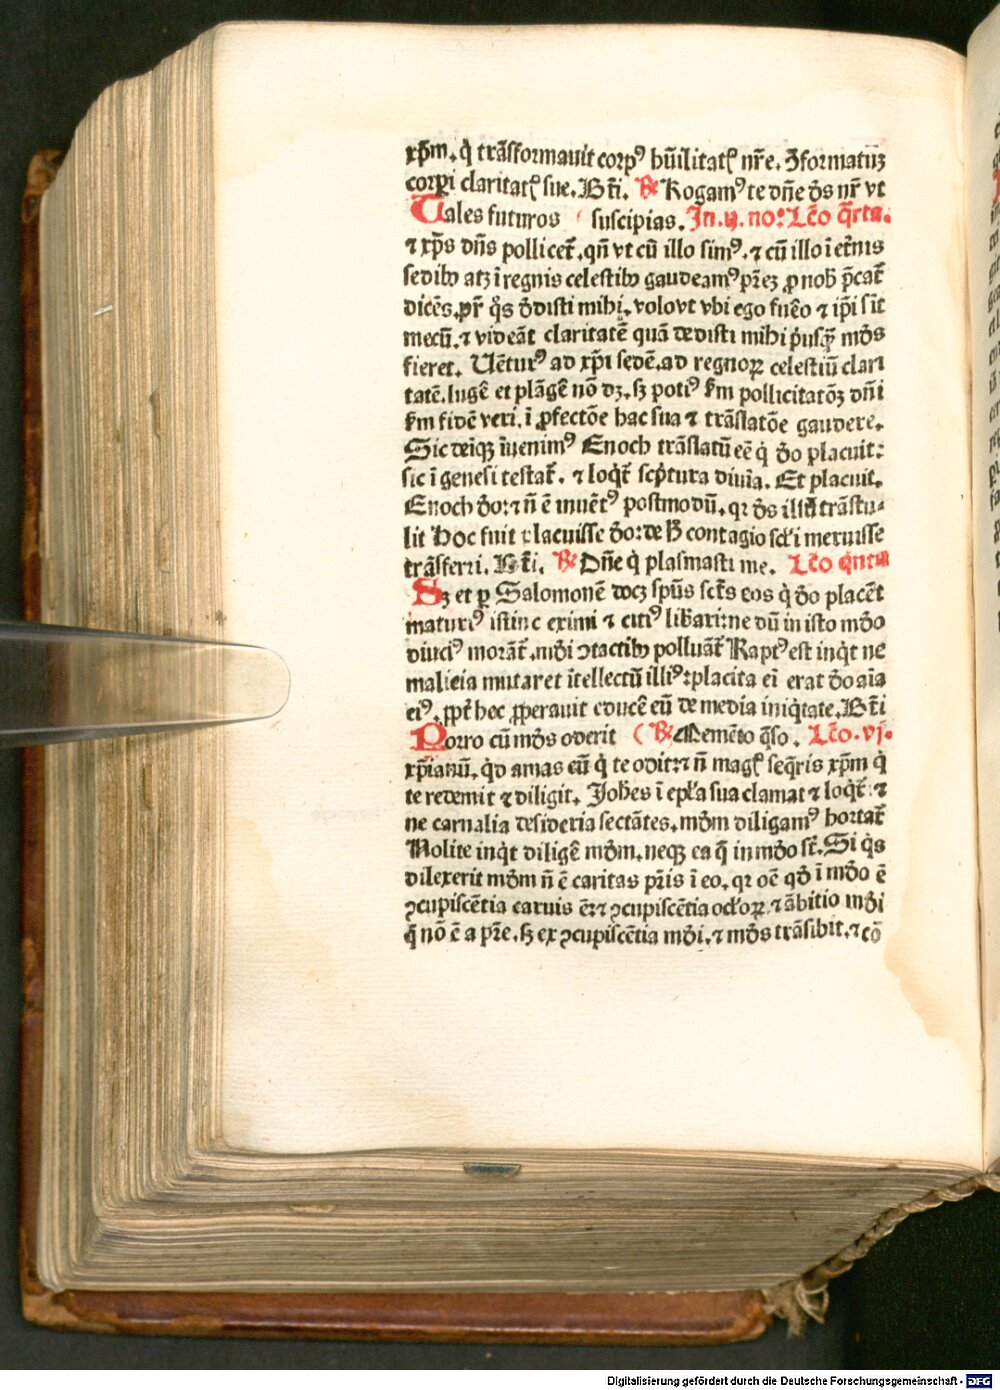 xp̄m. q̇ trāſformauit corpꝰ hūilitatꝭ nr̄e. ꝯformatū
corꝑi claritatꝭ ſue. Btī. ℟ Rogamꝰ te dn̄e ds̄ nr̄ vt
Tales futuros ( ſuſcipias. In .ij. noꝰ Lc̄o q̄rta.
⁊ xp̄s dn̄s pollicet̄. qn̄ vt cū illo ſimꝰ. ⁊ cū illo ī et̄nis
ſedibꝫ atꝫ ī regnis celeſtibꝫ gaudeamꝰ p̄rez ꝓ nob̄ p̄cat̄
dicēs. pr̄ q̇s dediſti mihi. volo vt vbi ego fuēo ⁊ ip̄i ſīt
mecū. ⁊ videāt claritatē quā dediſti mihi ṗuſꝙ̄ mōs
fieret. Uēturꝰ ad xp̄i ſedē. ad regnoꝝ celeſtiū clari
tatē. lugē et plāgē nō dꝫ. ſꝫ potiꝰ ẜm pollicitatōꝫ dn̄i
ẜm fidē veri. ī ꝓfectōe hac ſua ⁊ trāſlatōe gaudere.
Sic deiqꝫ īuenimꝰ Enoch trāſlatū eē q̇ do placuit:
ſic ī geneſi teſtat̄. ⁊ loqt̄ ſcp̄tura diuīa. Et placuit.
Enoch do: ⁊ n̄ ē inuētꝰ poſtmodū. qꝛ ds̄ illū trāſtu-
lit hoc fuit placuiſſe do: de h̄ contagio ſcl̄i meruiſſe
trāſferri. Btī. ℟ Dn̄e q̇ plaſmaſti me. Lc̄o q̇nta
Sꝫ et ꝑ Salomonē docꝫ ſpūs ſctꝰs eos q̇ do placēt
maturiꝰ iſtinc eximi ⁊ citiꝰ libari: ne dū in iſto mōo
diuciꝰ morāt̄. mōi ꝯtactibꝫ polluāt̄ Raptꝰ eſt inq̇t ne
malicia mutaret ītellectū illiꝰ: placita ei erat do aīa
eiꝰ. ꝓpt̄ hoc ꝓperauit educē eū de media iniq̇tate. Btī
Porro cū mōs oderit ( ℟ Memēto q̄ſo. Lc̄o. vj.
xp̄ianū. q̇d amas eū q̇ te odit: ⁊ n̄ magꝭ ſeq̄ris xp̄m q̇
te redemit ⁊ diligit. Joh̄es ī ep̄la ſua clamat ⁊ loqt̄: ⁊
ne carnalia deſideria ſectātes. mōm diligamꝰ hortat̄
Nolite inq̇t diligē mōm. neqꝫ ea q̄ in mōo ſt̄. Si q̇s
dilexerit mōm n̄ ē caritas pr̄is ī eo. qꝛ oē qd̄ ī mōo ē
ꝯcupiſcētia carnis ē: ⁊ ꝯcupiſcētia ocl̄oꝝ. ⁊ ābitio mōi
q̄ nō ē a pr̄e. ſꝫ ex ꝯcupiſcētia mōi. ⁊ mōs trāſibit. ⁊ cō
Digitalisierung gefördert durch die Deutsche Forschungsgemeinschaft - DFG